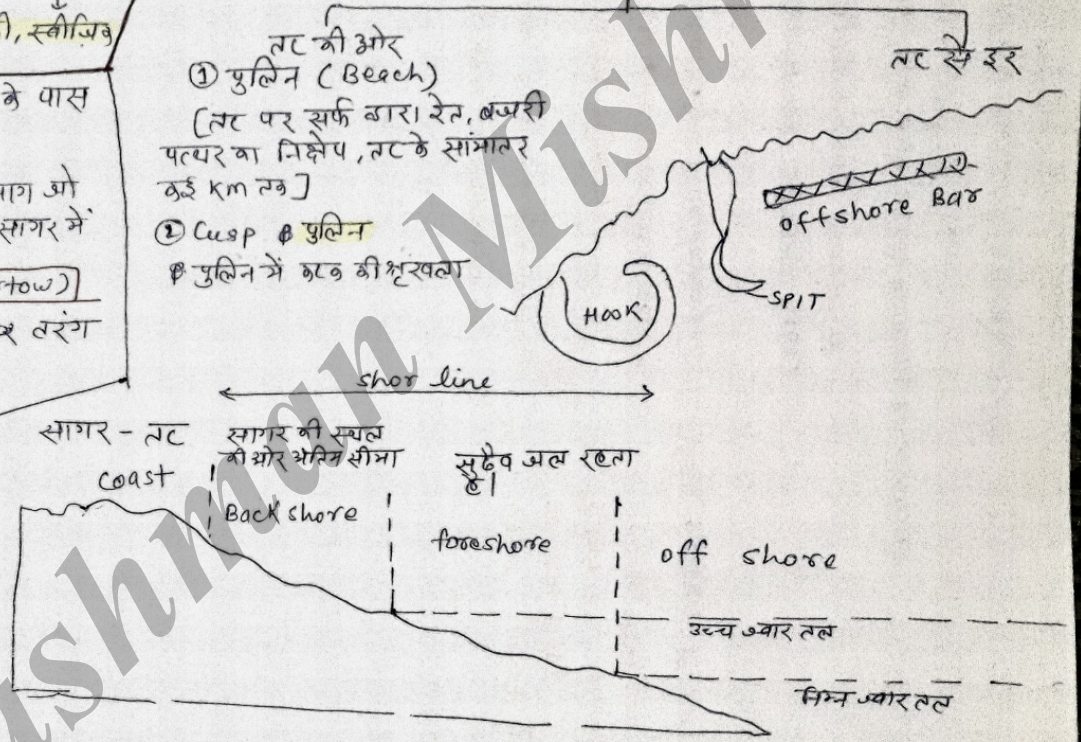 स्वीज़िच
के पास
भाग जो
सागर में
तरंग
तट की ओर
① पुलिन (Beach)
[तट पर सर्फ द्वारा रेत, बजरी
पत्थर का निक्षेप, तट के सांमातर
कई Km तक]
② Cusp पुलिन
पुलिन में कटक की श्रृंखला
तट से दूर
offshore Bar
SPIT
HOOK
shor line
सागर - तट
coast
सागर की स्थल
की ओर अंतिम सीमा
सदैव जल रहता
है।
Back shore
foreshore
off shore
उच्च ज्वार तल
निम्न ज्वार तल
Lashman Mishr